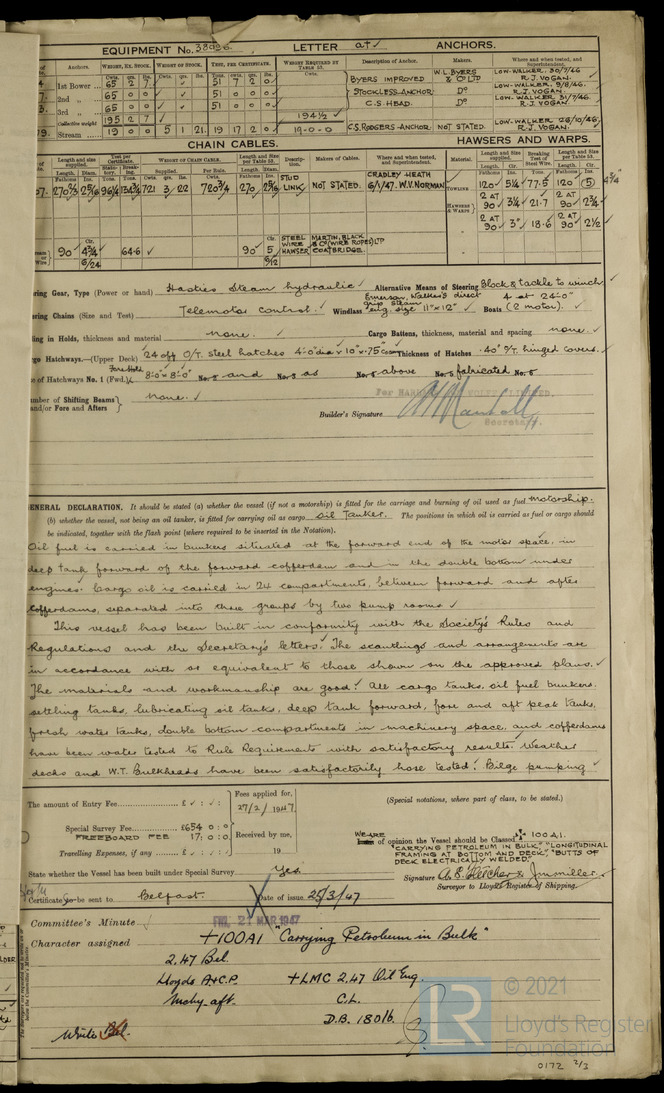 EQUIPMENT No. 38996. LETTER a†✓ ANCHORS.
Anchors. WEIGHT, EX. STOCK. WEIGHT OF STOCK. TEST, PER CERTIFICATE. WEIGHT REQUIRED BY TABLE 53. Description of Anchor. Makers. Where and when tested, and Superintendent.
Cwts. qrs. lbs. Cwts. qrs. lbs. Tons. Cwts. qrs. lbs. Cwts.
1st Bower 65 2 7 ✓ ✓ 51 7 2 0 BYERS IMPROVED W.L BYERS & CO LTD LOW-WALKER. 30/7/46 R.J. VOGAN.
2nd „ 65 0 0 ✓ ✓ 51 0 0 0 STOCKLESS-ANCHOR Do LOW-WALKER 9/8/46. R.J. VOGAN.
3rd „ 65 0 0 ✓ ✓ 51 0 0 0 C.S. HEAD. Do LOW-WALKER 31/7/46. R.J. VOGAN
Collective weight 195 2 7 ✓ 194½ ✓
Stream 19 0 0 5 1 21. 19 17 2 0 19-0-0 C.S. RODGERS-ANCHOR. NOT STATED. LOW-WALKER 26/10/46. R.J. VOGAN.
CHAIN CABLES. HAWSERS AND WARPS.
Length and size supplied. Test per Certificate. WEIGHT OF CHAIN CABLE. Length and Size per Table 53. Description. Makers of Cables. Where and when tested, and Superintendent. Material. Length and Size supplied. Breaking Test of Steel Wire. Length and Size per Table 53.
Fathoms Diam. Statutory. Breaking. Supplied. Per Rule. Fathoms Diam.
270 2⅝ 96¼ 134¾ 721 3 22 720¾ 270 2⅝ STUD LINK NOT STATED. CRADLEY HEATH 6/1/47. W.V. NORMAN TOWLINE 120 5¼ 77.5 120 (5) 4¾"
HAWSERS & WARPS 2 AT 90 3¼ 21.7 2 AT 90 2¾
„ 2 AT 90 3" 18.6 2 AT 90 2½
90 4¾ 6/24 64.6 ✓ 90 5 6/12 STEEL WIRE HAWSER MARTIN, BLACK & CO (WIRE ROPES) LTD COATBRIDGE.
ering Gear, Type (Power or hand) Hasties Steam hydraulic ✓ Alternative Means of Steering Block & tackle to winch
ering Chains (Size and Test) Telemotor control. ✓ Windlass Emerson, Walker's direct grip steam eng. size 11"x12" ✓ Boats 4 at 24'-0" (2 motor). ✓
ling in Holds, thickness and material none. ✓ Cargo Battens, thickness, material and spacing none. ✓
rgo Hatchways.—(Upper Deck) 24 off O/T. steel hatches 4'-0" dia x 10" x .75" Thickness of Hatches .40" O/T. hinged covers.
e of Hatchways No. 1 (Fwd.) Fore Hold 8'-0" x 8'-0" No. 2 and No. 3 as No. 4 above No. 5 fabricated No. 6
umber of Shifting Beams and/or Fore and Afters } none. ✓
Builder's Signature
Secretary.
GENERAL DECLARATION. It should be stated (a) whether the vessel (if not a motorship) is fitted for the carriage and burning of oil used as fuel Motorship.
(b) whether the vessel, not being an oil tanker, is fitted for carrying oil as cargo Oil Tanker. The positions in which oil is carried as fuel or cargo should
be indicated, together with the flash point (where required to be inserted in the Notation).
Oil fuel is carried in bunkers situated at the forward end of the motor space, in
deep tank forward of the forward cofferdam and in the double bottom under
engines. Cargo oil is carried in 24 compartments, between forward and after
cofferdams, separated into three groups by two pump rooms ✓
This vessel has been built in conformity with the Society's Rules and
Regulations and the Secretary's letters. The scantlings and arrangements are
in accordance with or equivalent to those shown on the approved plans. ✓
The materials and workmanship are good. All cargo tanks, oil fuel bunkers,
settling tanks, lubricating oil tanks, deep tank forward, fore and aft peak tanks,
fresh water tanks, double bottom compartments in machinery space, and cofferdams
have been water tested to Rule Requirements with satisfactory results. Weather
decks and W.T. Bulkheads have been satisfactorily hose tested. Bilge pumping ✓
The amount of Entry Fee............ £ : : Fees applied for, 27/2/1947. (Special notations, where part of class, to be stated.)
Special Survey Fee £654 0 : 0 :
FREEBOARD FEE 17 : 0 : 0 Received by me,
Travelling Expenses, if any ... £ : : 19
WE ARE of opinion the Vessel should be Classed + 100A1.
"CARRYING PETROLEUM IN BULK" "LONGITUDINAL
FRAMING AT BOTTOM AND DECK", "BUTTS OF
DECK ELECTRICALLY WELDED."
State whether the Vessel has been built under Special Survey. Yes. Signature A. E. Fletcher & J. M. Miller.
Surveyor to Lloyd's Register of Shipping.
Certificate to be sent to Belfast. Date of issue 25/3/47
Committee's Minute FRI. 21 MAR 1947
Character assigned +100A1 "Carrying Petroleum in Bulk"
2.47 Bel.
Lloyds A&C.P. +LMC 2.47 Oil Eng.
Mchy. aft. C.L.
D.B. 180 lb.
Write Bel.
LR © 2021
Lloyd's Register
Foundation
0172 2/3